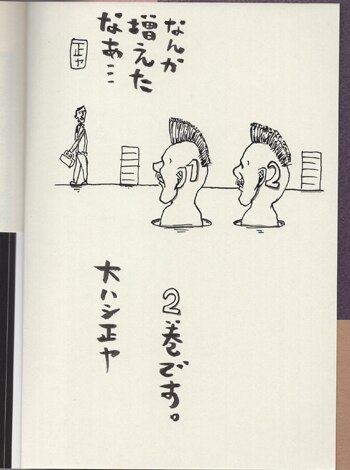 なんか
増えた
なあ…
正ヤ
2
2巻です。
大ハシ正ヤ